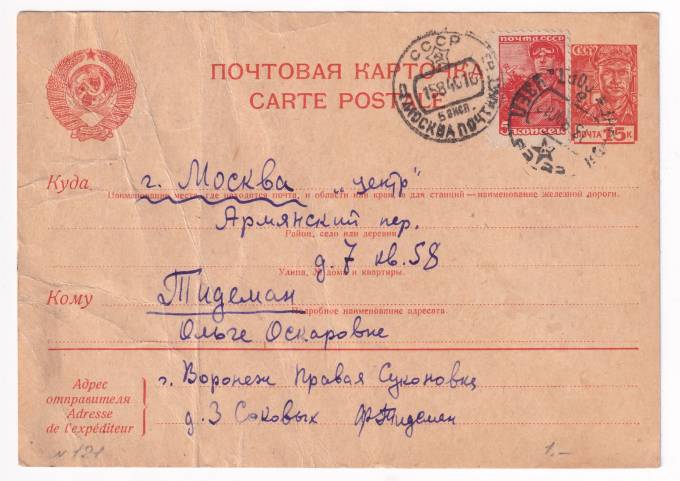 ПОЧТОВАЯ КАРТОЧКА
CARTE POSTALE
СССР
15840
5 эксп.
МОСКВА ПОЧТ.
ПОЧТА СССР
5 КОПЕЕК
СССР
ПОЧТА 15 К
Куда
г. Москва „центр"
Наименование места, где находится почта, и области или края, а для станций — наименование железной дороги.
Армянский пер.
Район, село или деревня
д. 7 кв. 58
Улица, № дома и квартиры.
Кому
Тидеман
Подробное наименование адресата
Ольге Оскаровне
Адрес отправителя
Adresse de l'expéditeur
г. Воронеж Правая Суконовка
д. 3 Соковых Ф Тидеман
N 121
1.–